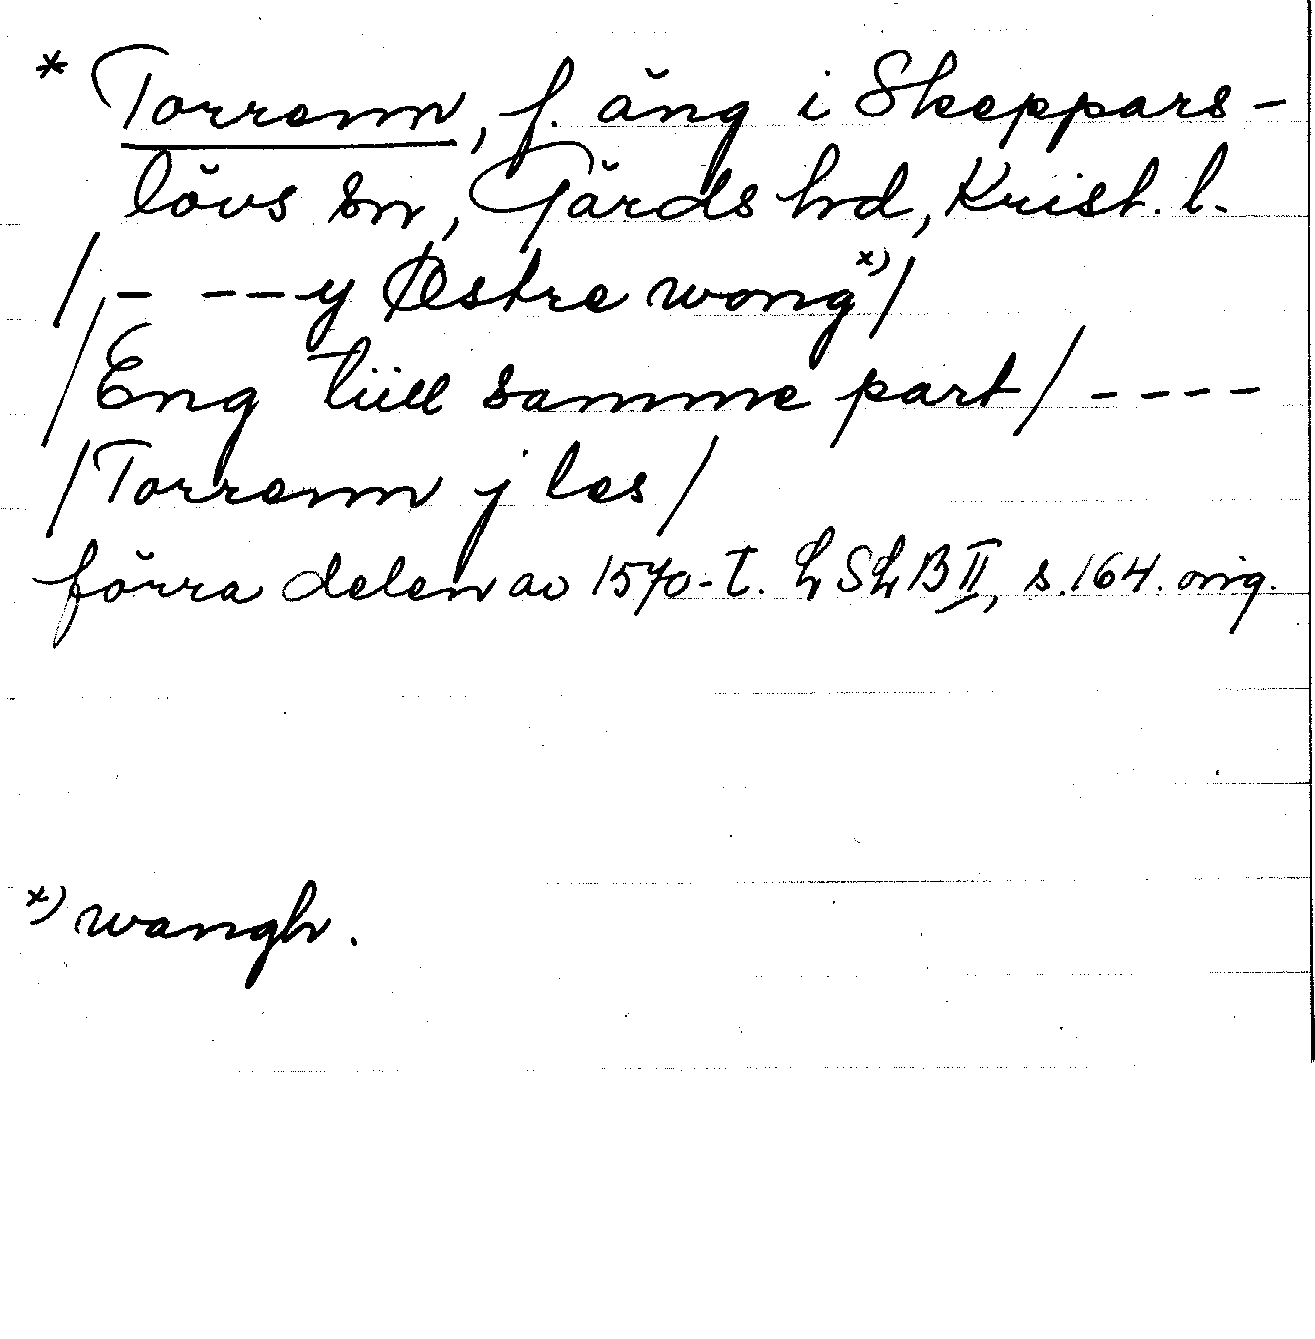 * Torrenn, f. äng i Skeppars-
lövs sn, Gärds hd, Krist. l.
/- --y Østre wong x)/
/Eng tiill samme part/ ----
/Torrenn j les/
förra delen av 1570-t. LSLB II, s. 164. orig.
x) wangh.